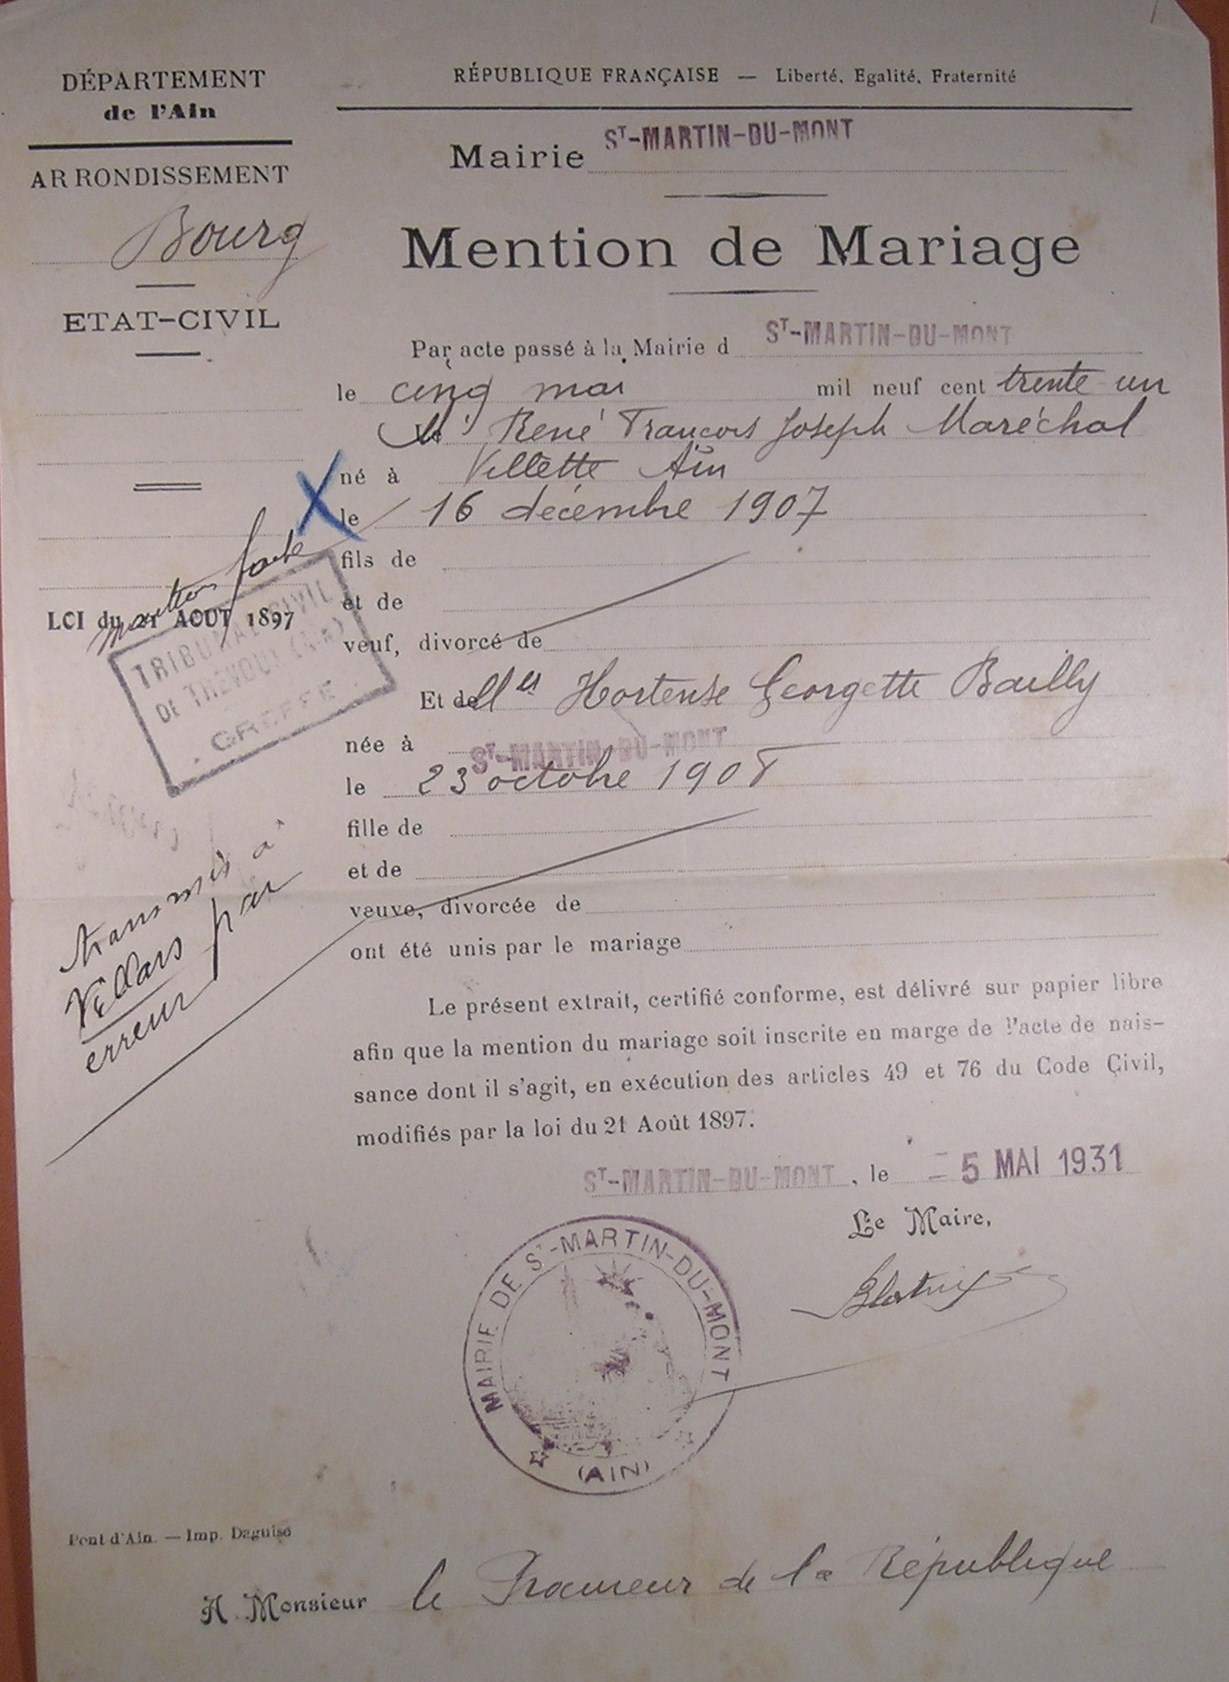 DÉPARTEMENT
de l'Ain
ARRONDISSEMENT
Bourg
ETAT-CIVIL
LOI du 21 AOUT 1897
mention faite
TRIBUNAL CIVIL
DE TRÉVOUX (Ain)
GREFFE
transmis à
Villars par
erreur
RÉPUBLIQUE FRANÇAISE — Liberté, Egalité, Fraternité
Mairie ST-MARTIN-DU-MONT
Mention de Mariage
Par acte passé à la Mairie d ST-MARTIN-DU-MONT
le cinq mai mil neuf cent trente un
René François Joseph Maréchal
né à Villette Ain
le 16 décembre 1907
fils de
et de
veuf, divorcé de
Et de Mlle Hortense Georgette Bailly
née à ST-MARTIN-DU-MONT
le 23 octobre 1908
fille de
et de
veuve, divorcée de
ont été unis par le mariage
Le présent extrait, certifié conforme, est délivré sur papier libre
afin que la mention du mariage soit inscrite en marge de l'acte de nais-
sance dont il s'agit, en exécution des articles 49 et 76 du Code Civil,
modifiés par la loi du 21 Août 1897.
ST-MARTIN-DU-MONT, le - 5 MAI 1931
Le Maire,
MAIRIE DE ST-MARTIN-DU-MONT
(AIN)
Pont d'Ain. — Imp. Daguise
A Monsieur le Procureur de la République